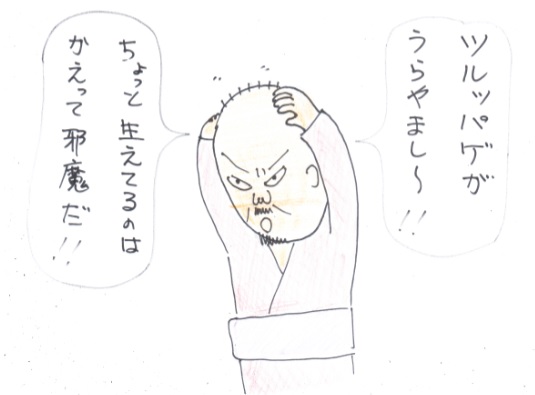 ツルッパゲが
うらやまし～!!
ちょっと生えてるのは
かえって邪魔だ!!